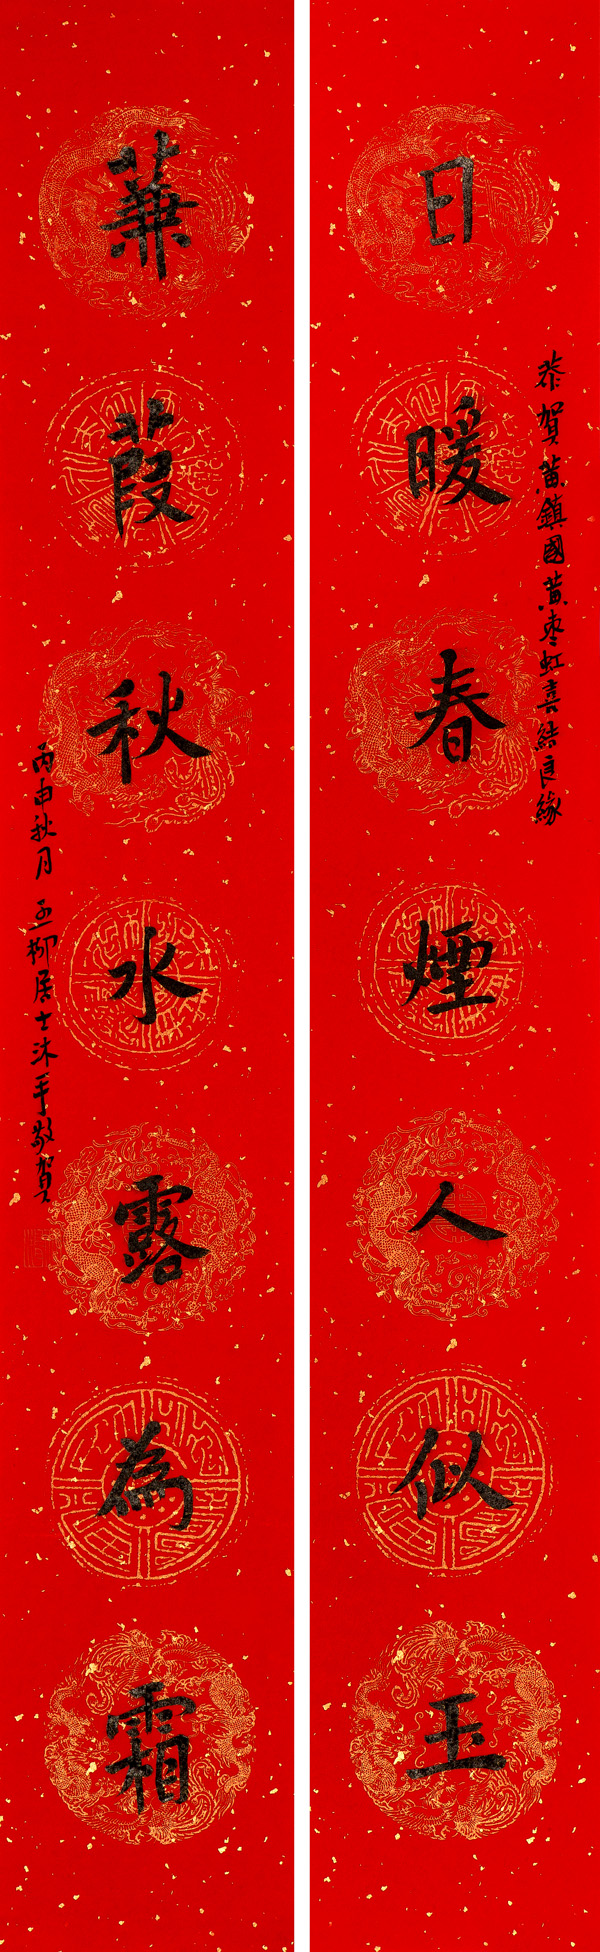 恭賀黃鎮國黃棗虹喜結良緣
日暖春煙人似玉
蒹葭秋水露為霜
丙申秋月 五柳居士沐手敬賀